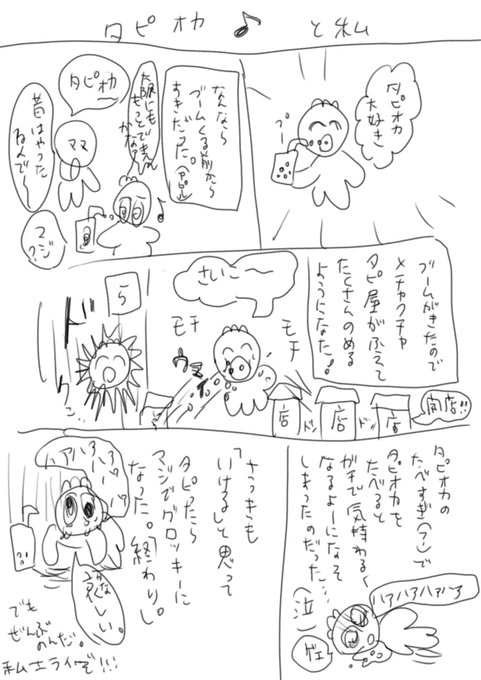 タピオカ♪と私
タピオカ
大好き
なんなら
ブームくる前から
すきだった。
大阪にも
もっとできない
かな?
タピオカ
ママ
昔はやった
なんで~
マジ?
ブームがきたので
メチャクチャ
タピ屋がふえて
たくさんのめる
ようになった!
開店!!
店
ドン
店
ドン
店
さいこ~
モチ
モチ
う
ドクン
タピオカの
たべすぎ(?)で
タピオカを
たべると
ガチで気持わるく
なるよーになって
しまったのだった…
(泣)
ハアハアハアハア
ゲェ
さっきも
「いけるし」と思って
タピったら
マジでグロッキーに
なった。終わり。
ハアハアハア
難しい。
でも
ぜんぶのんだ。
私エライぞ!!!